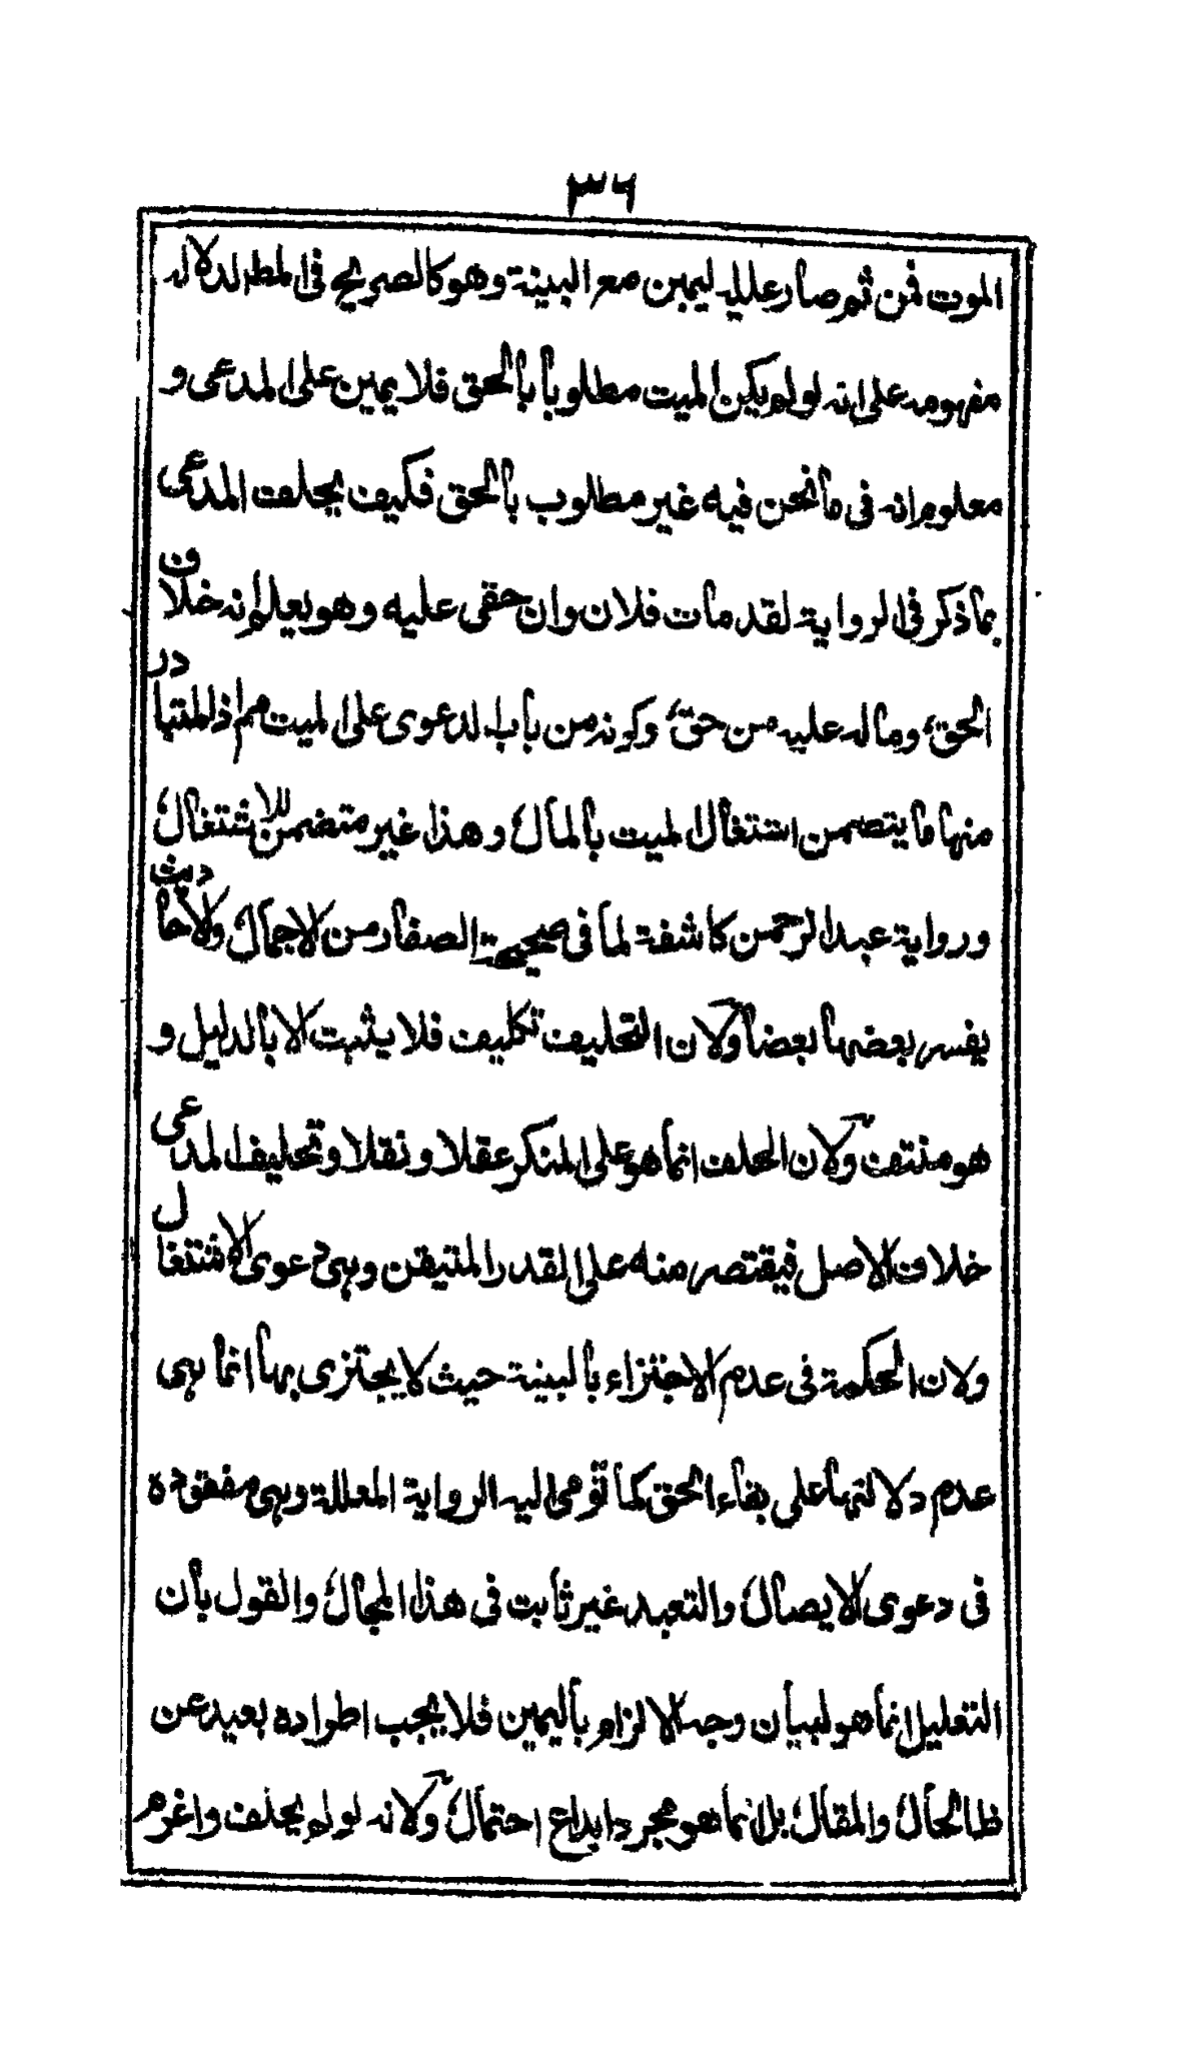 ٣٦
الموت فمن ثم صار عليه ليمين مع البينة وهو كالصريح فى المط لدلاله
مفهومه على انه لو لم يكن الميت مطلوبا بالحق فلا يمين على المدعى و
معلوم انه فى ما نحن فيه غير مطلوب بالحق فكيف يحلف المدعى
بما ذكر فى الرواية لقد مات فلان وان حقى عليه وهو يعلم انه خلاف
الحق وماله عليه من حق وكونه من باب الدعوى على الميت مم اذ المتبادر
منها ما يتضمن اشتغال الميت بالمال وهذا غير متضمن للاشتغال
ورواية عبد الرحمن كاشفة لما فى صحيحة الصفار من الاجمال والاحاديث
يفسر بعضها بعضا ولان التحليف تكليف فلا يثبت الا بالدليل و
هو منتف ولان الحلف انما هو على المنكر عقلا ونقلا وتحليف المدعى
خلاف الاصل فيقتصر منه على القدر المتيقن وهى دعوى الاشتغال
ولان الحكمة فى عدم الاجتزاء بالبينة حيث لا يجتزى بها انما هى
عدم دلالتها على بقاء الحق كما تؤمى اليه الرواية المعللة وهى مفقودة
فى دعوى الايصال والتعبد غير ثابت فى هذا المجال والقول بان
التعليل انما هو لبيان وجه الالزام باليمين فلا يجب اطراده بعيد عن
ظا الحال والمقال بل انما هو مجرد ابداع احتمال ولانه لو لم يحلف واغرم